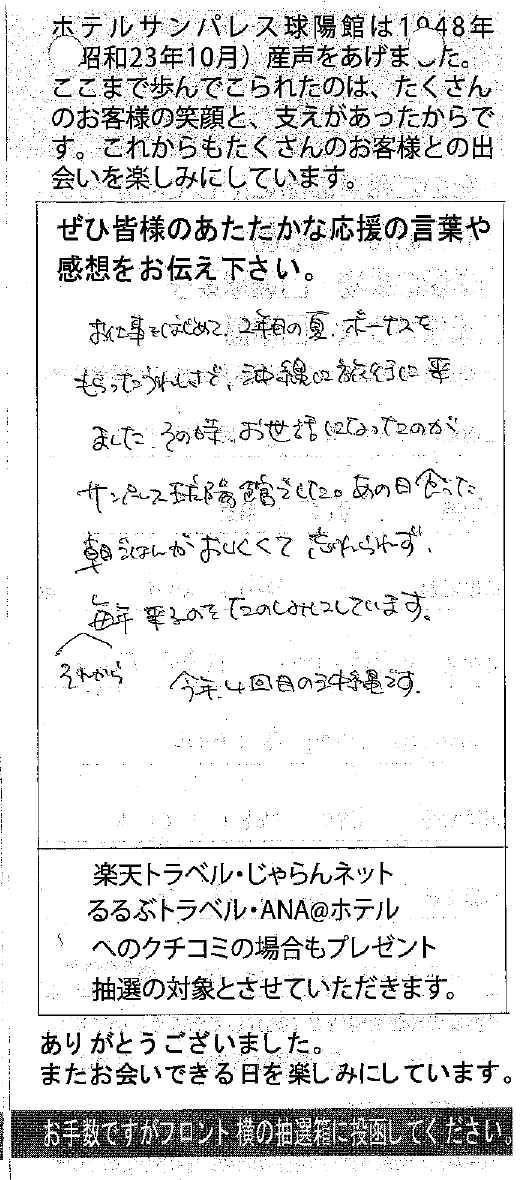 ホテルサンパレス球陽館は1948年
昭和23年10月）産声をあげました。
ここまで歩んでこられたのは、たくさん
のお客様の笑顔と、支えがあったからで
す。これからもたくさんのお客様との出
会いを楽しみにしています。
ぜひ皆様のあたたかな応援の言葉や
感想をお伝え下さい。
お仕事をはじめて、2年目の夏、ボーナスを
もらったうれしさで、沖縄に旅行に来
ました。その時、お世話になったのが
サンパレス球陽館でした。あの日食った
朝ごはんがおいしくて忘れられず、
毎年来るのをたのしみにしています。
それから
今年、4回目の沖縄です。
楽天トラベル・じゃらんネット
るるぶトラベル・ANA@ホテル
へのクチコミの場合もプレゼント
抽選の対象とさせていただきます。
ありがとうございました。
またお会いできる日を楽しみにしています。
お手数ですがフロント横の抽選箱に投函してください。